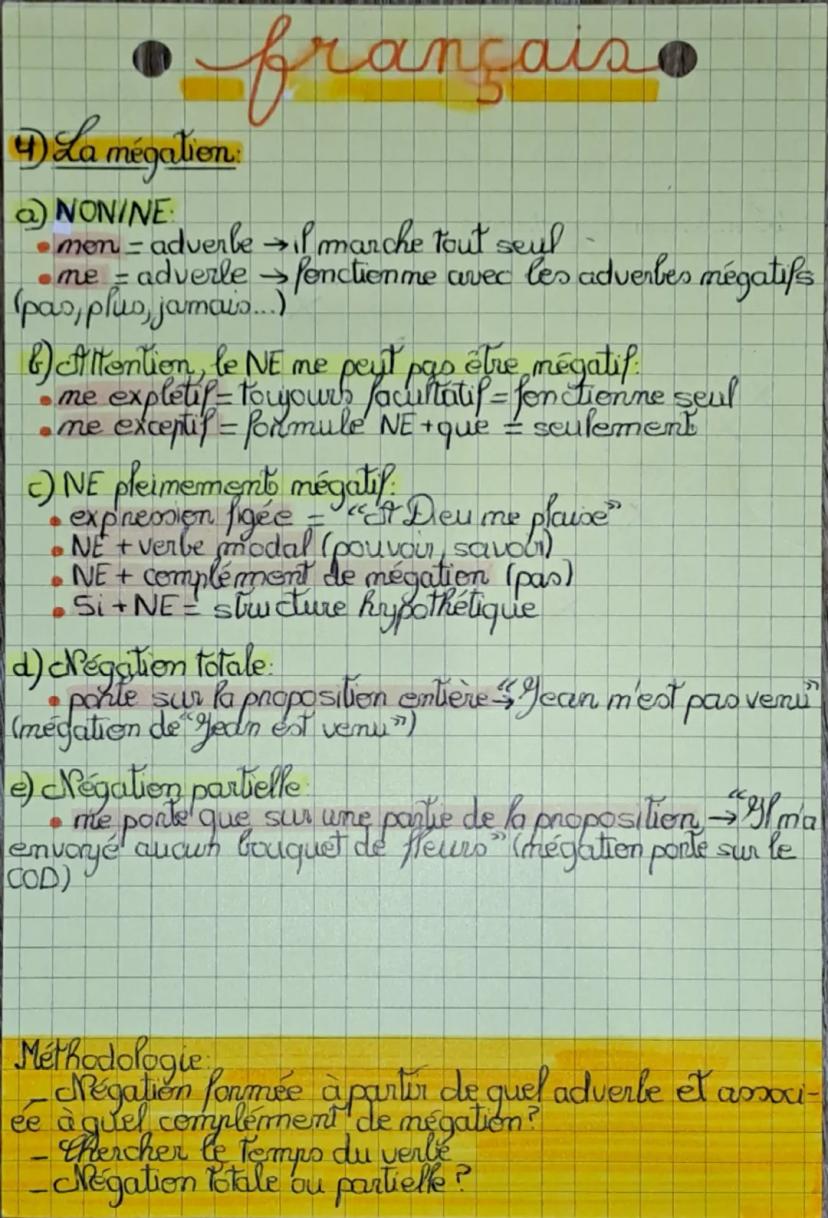 français
4) La négation:
a) NON/NE:
• non = adverbe → il marche tout seul
• ne = adverbe → fonctionne avec les adverbes négatifs
(pas, plus, jamais...)
b) Attention, le NE ne peut pas être négatif:
• ne explétif = toujours facultatif = fonctionne seul
• ne exceptif = formule NE + que = seulement
c) NE pleinements négatif:
• expression figée = "A Dieu ne plaise"
• NE + verbe modal (pouvoir, savoir)
• NE + complément de négation (pas)
• Si + NE = structure hypothétique
d) Négation totale:
• porte sur la proposition entière → "Jean n'est pas venu"
(négation de "Jean est venu")
e) Négation partielle:
• ne porte que sur une partie de la proposition → "Il n'a
envoyé aucun bouquet de fleurs" (négation porte sur le
COD)
Méthodologie:
_ Négation formée à partir de quel adverbe et associ-
ée à quel complément de négation?
_ Chercher le temps du verbe
_ Négation totale ou partielle?